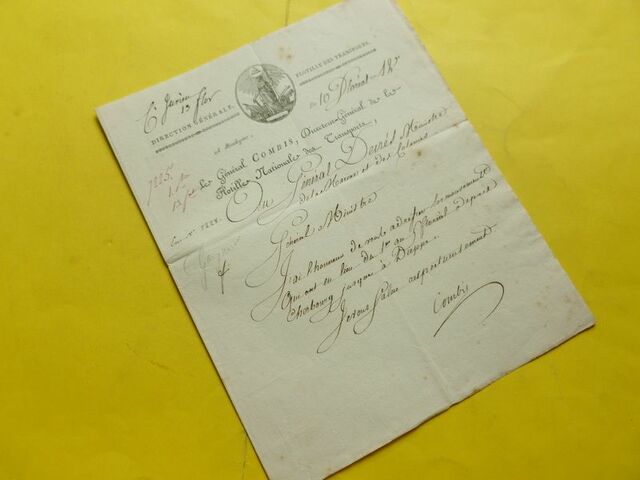 13 flor
DIRECTION GÉNÉRALE.
FLOTILLE DES TRANSPORTS.
10 floréal 12e
Le Général COMBIS, Directeur Général de la
Flotille Nationale des Transports,
1225.
Au Général Decrès Ministre
de la Marine et des Colonies
Général Ministre
J'ai l'honneur de vous adresser les mouvements
qui ont eu lieu du 1er au 8 floréal depuis
Cherbourg jusques à Dieppe.
Je vous salue respectueusement
Combis